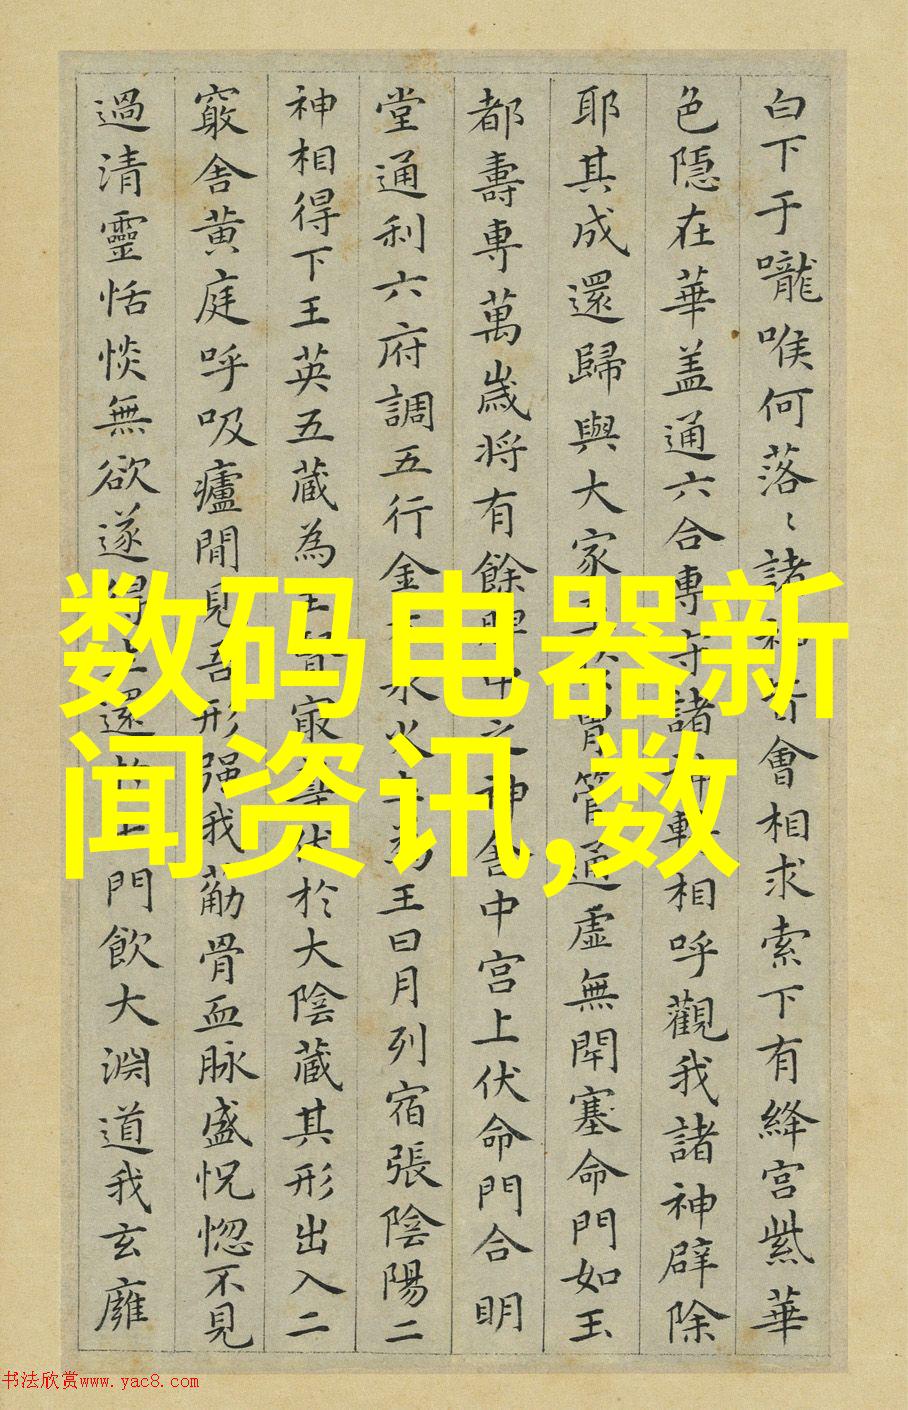 白下于嚨喉何落〻諸神皆會相求索下有絳宫紫華
色隱在華盖通六合專守諸神轉相呼觀我諸神辟除
耶其成還歸與大家胃管通虚無閉塞命門如玉
都壽專萬歲将有餘脾中之神舍中宫上伏命門合明
堂通利六府調五行金木水火土為王日月列宿張陰陽二
神相得下王英五蔵為主腎寂伏於大陰蔵其形出入二
竅舍黄庭呼吸廬閒見吾形强我茒骨血脉盛怳惚不見
過清靈恬惔無欲遂得還門飲大淵道我玄廱
数码电器新
闻资讯,数
书法欣赏www.yac8.com